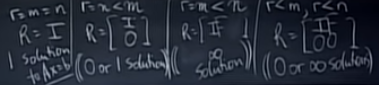 r=m=n
R=I
1 solution
to Ax=b
r=n<m
R=[I
0]
(0 or 1 solution)
r=m<n
R=[I F]
(∞
solution)
r<m, r<n
R=[I F
0 0]
(0 or ∞ solution)